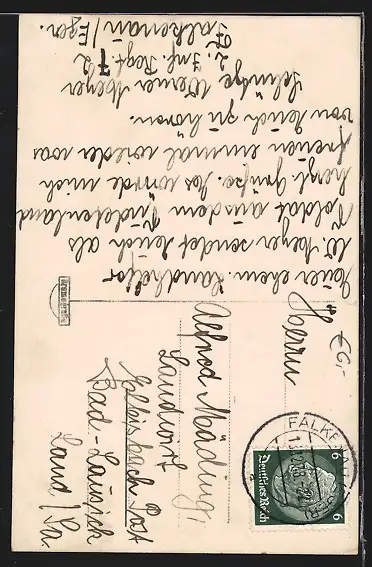 Euer ehem. Landhelfer
W. Meyer sendet Euch als
Soldat aus dem Sudetenland
herzl. Grüße. Es würde mich
freuen einmal wieder was
von Euch zu hören.
Schütze Werner Meyer
2. Inf. Regt. 72
Falkenau/Eger.
£G,-
Herrn
Alfred Mäding,
Landwirt
Ebersbach Post
Bad-Lausick
Land/Sa.
FALKENAU
Deutsches Reich
6 6